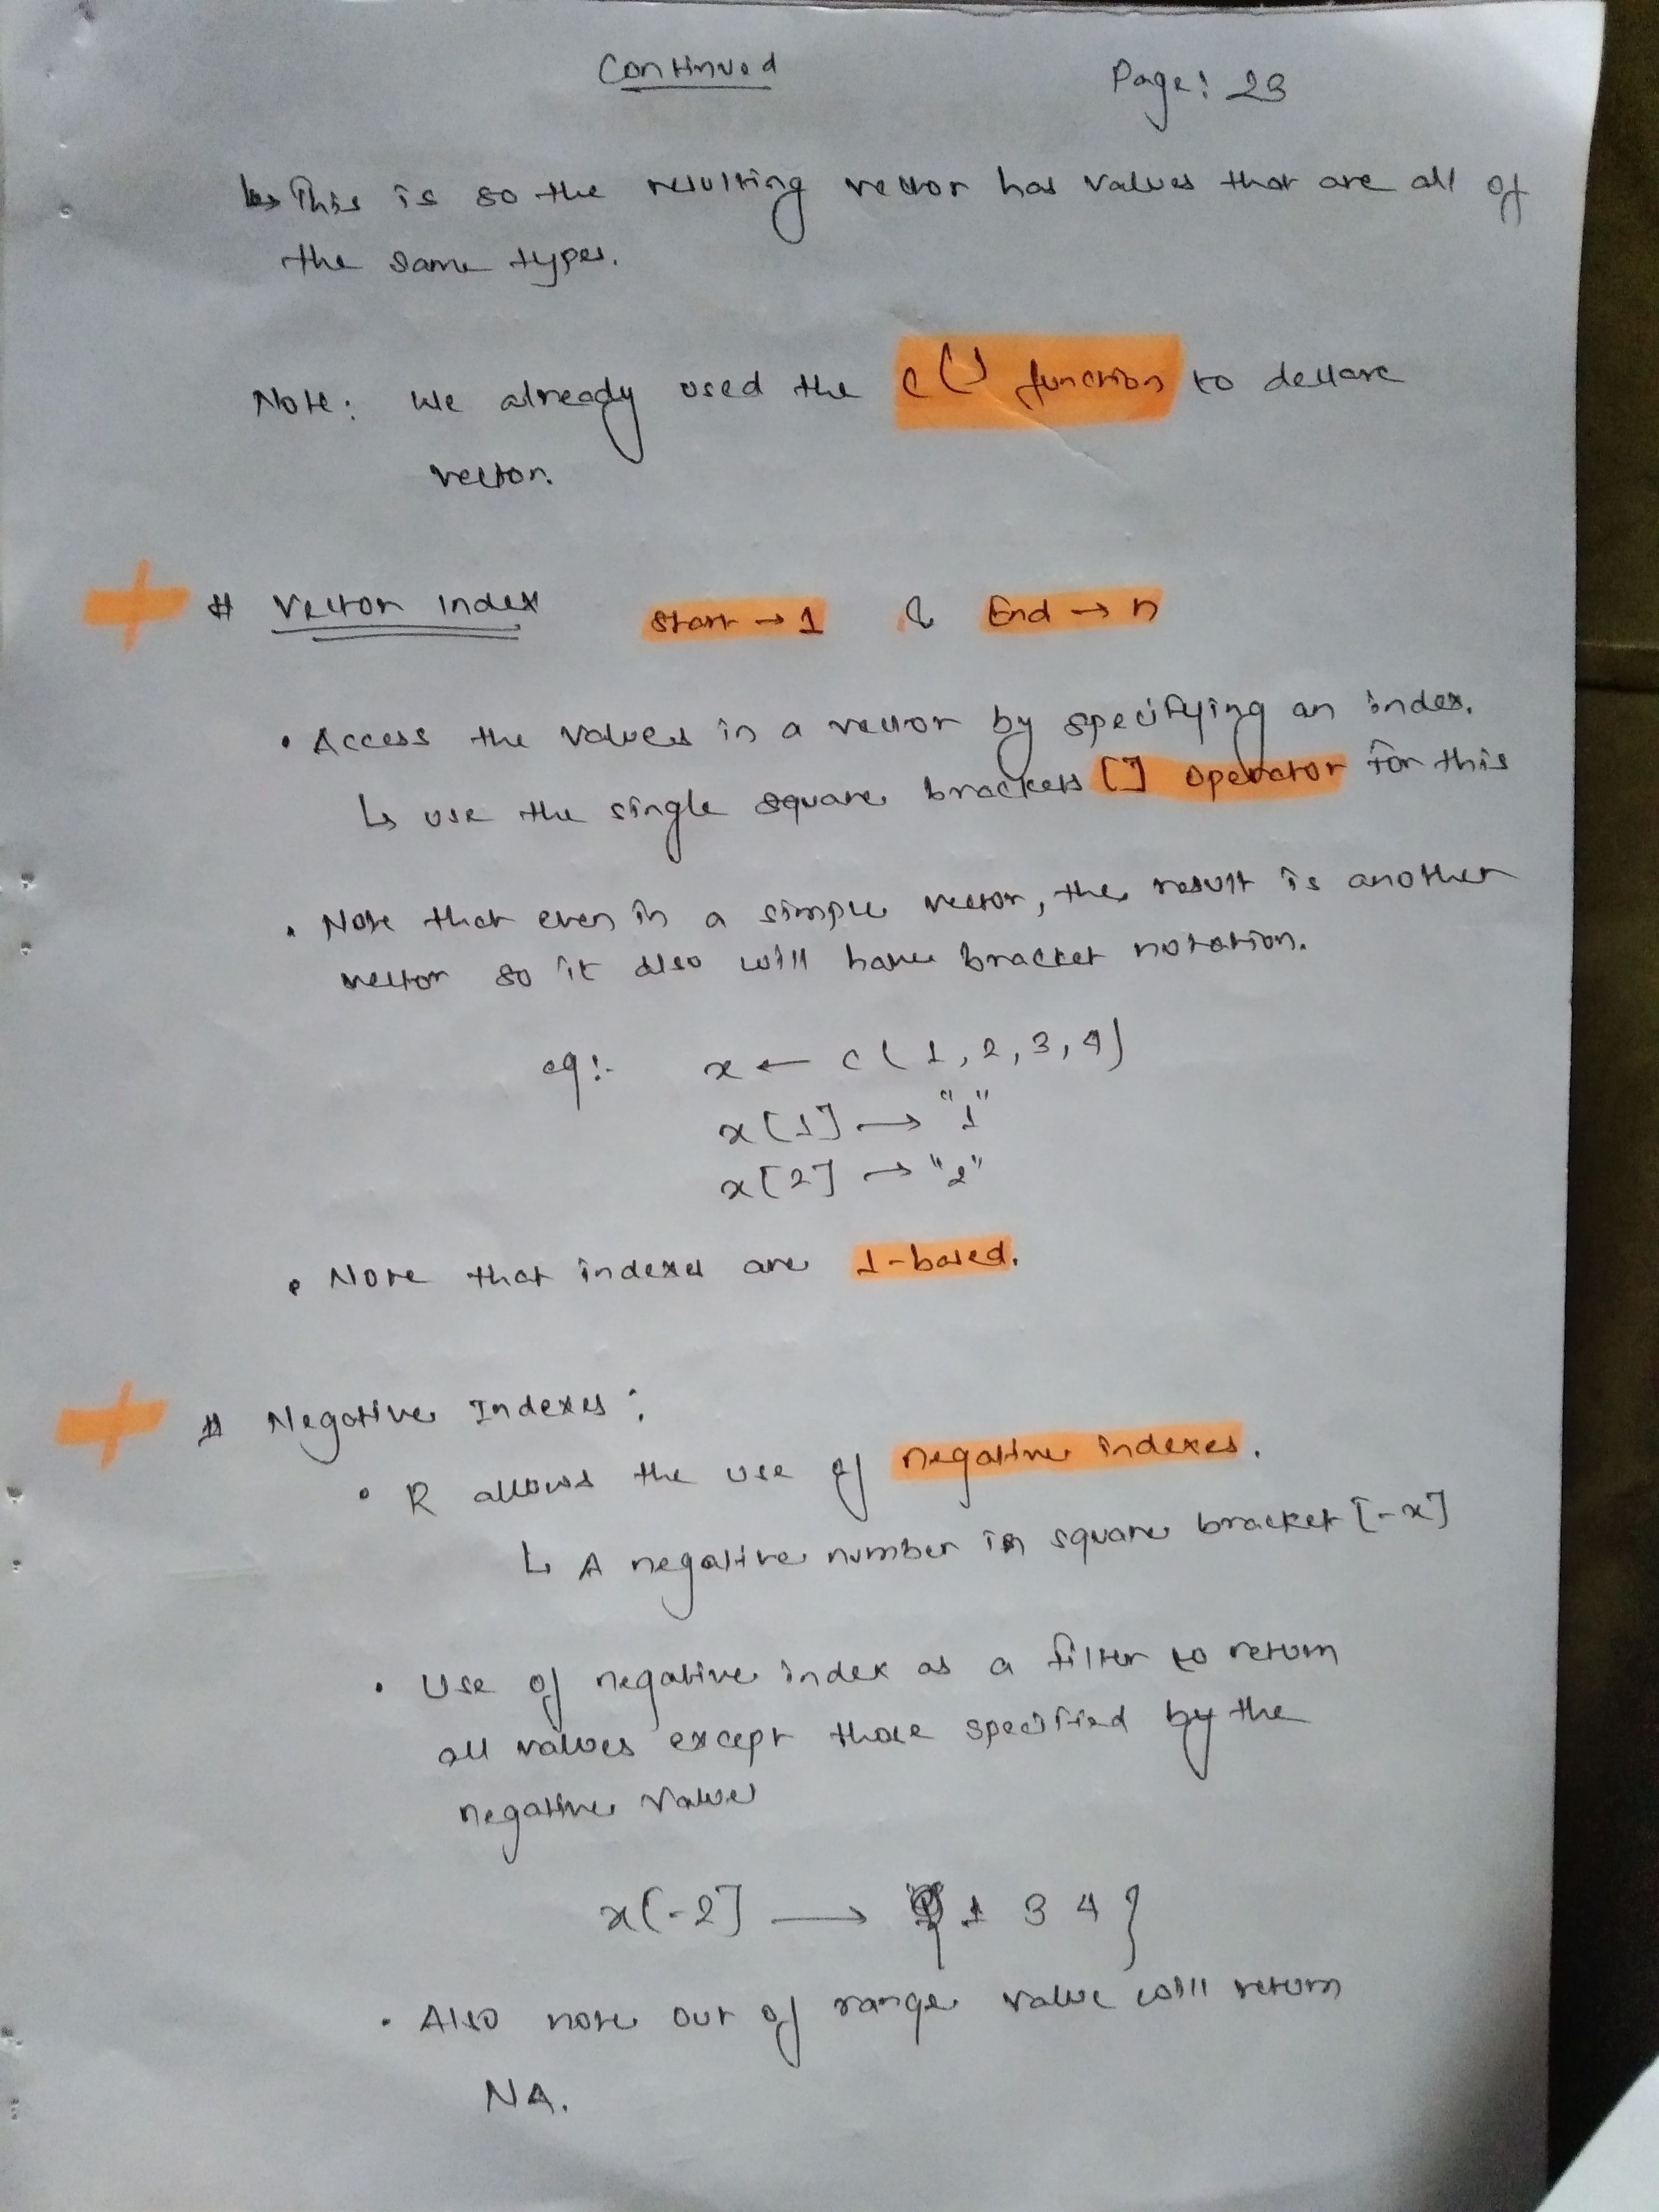 Continued
Page: 23
↳ This is so the resulting vector has values that are all of
the same types.
Note: We already used the c() function to declare
vector.
# Vector Index   Start → 1 & End → n
• Access the values in a vector by specifying an index.
↳ use the single square brackets [] operator for this
• Note that even in a simple vector, the result is another
vector so it also will have bracket notation.
eg:- x ← c(1, 2, 3, 4)
x[1] → "1"
x[2] → "2"
• Note that indexes are 1-based.
# Negative Indexes:
• R allows the use of negative indexes.
↳ A negative number in square bracket [-x]
• Use of negative index as a filter to return
all values except those specified by the
negative value
x[-2] → { 1 3 4 }
• Also note out of range value will return
NA.